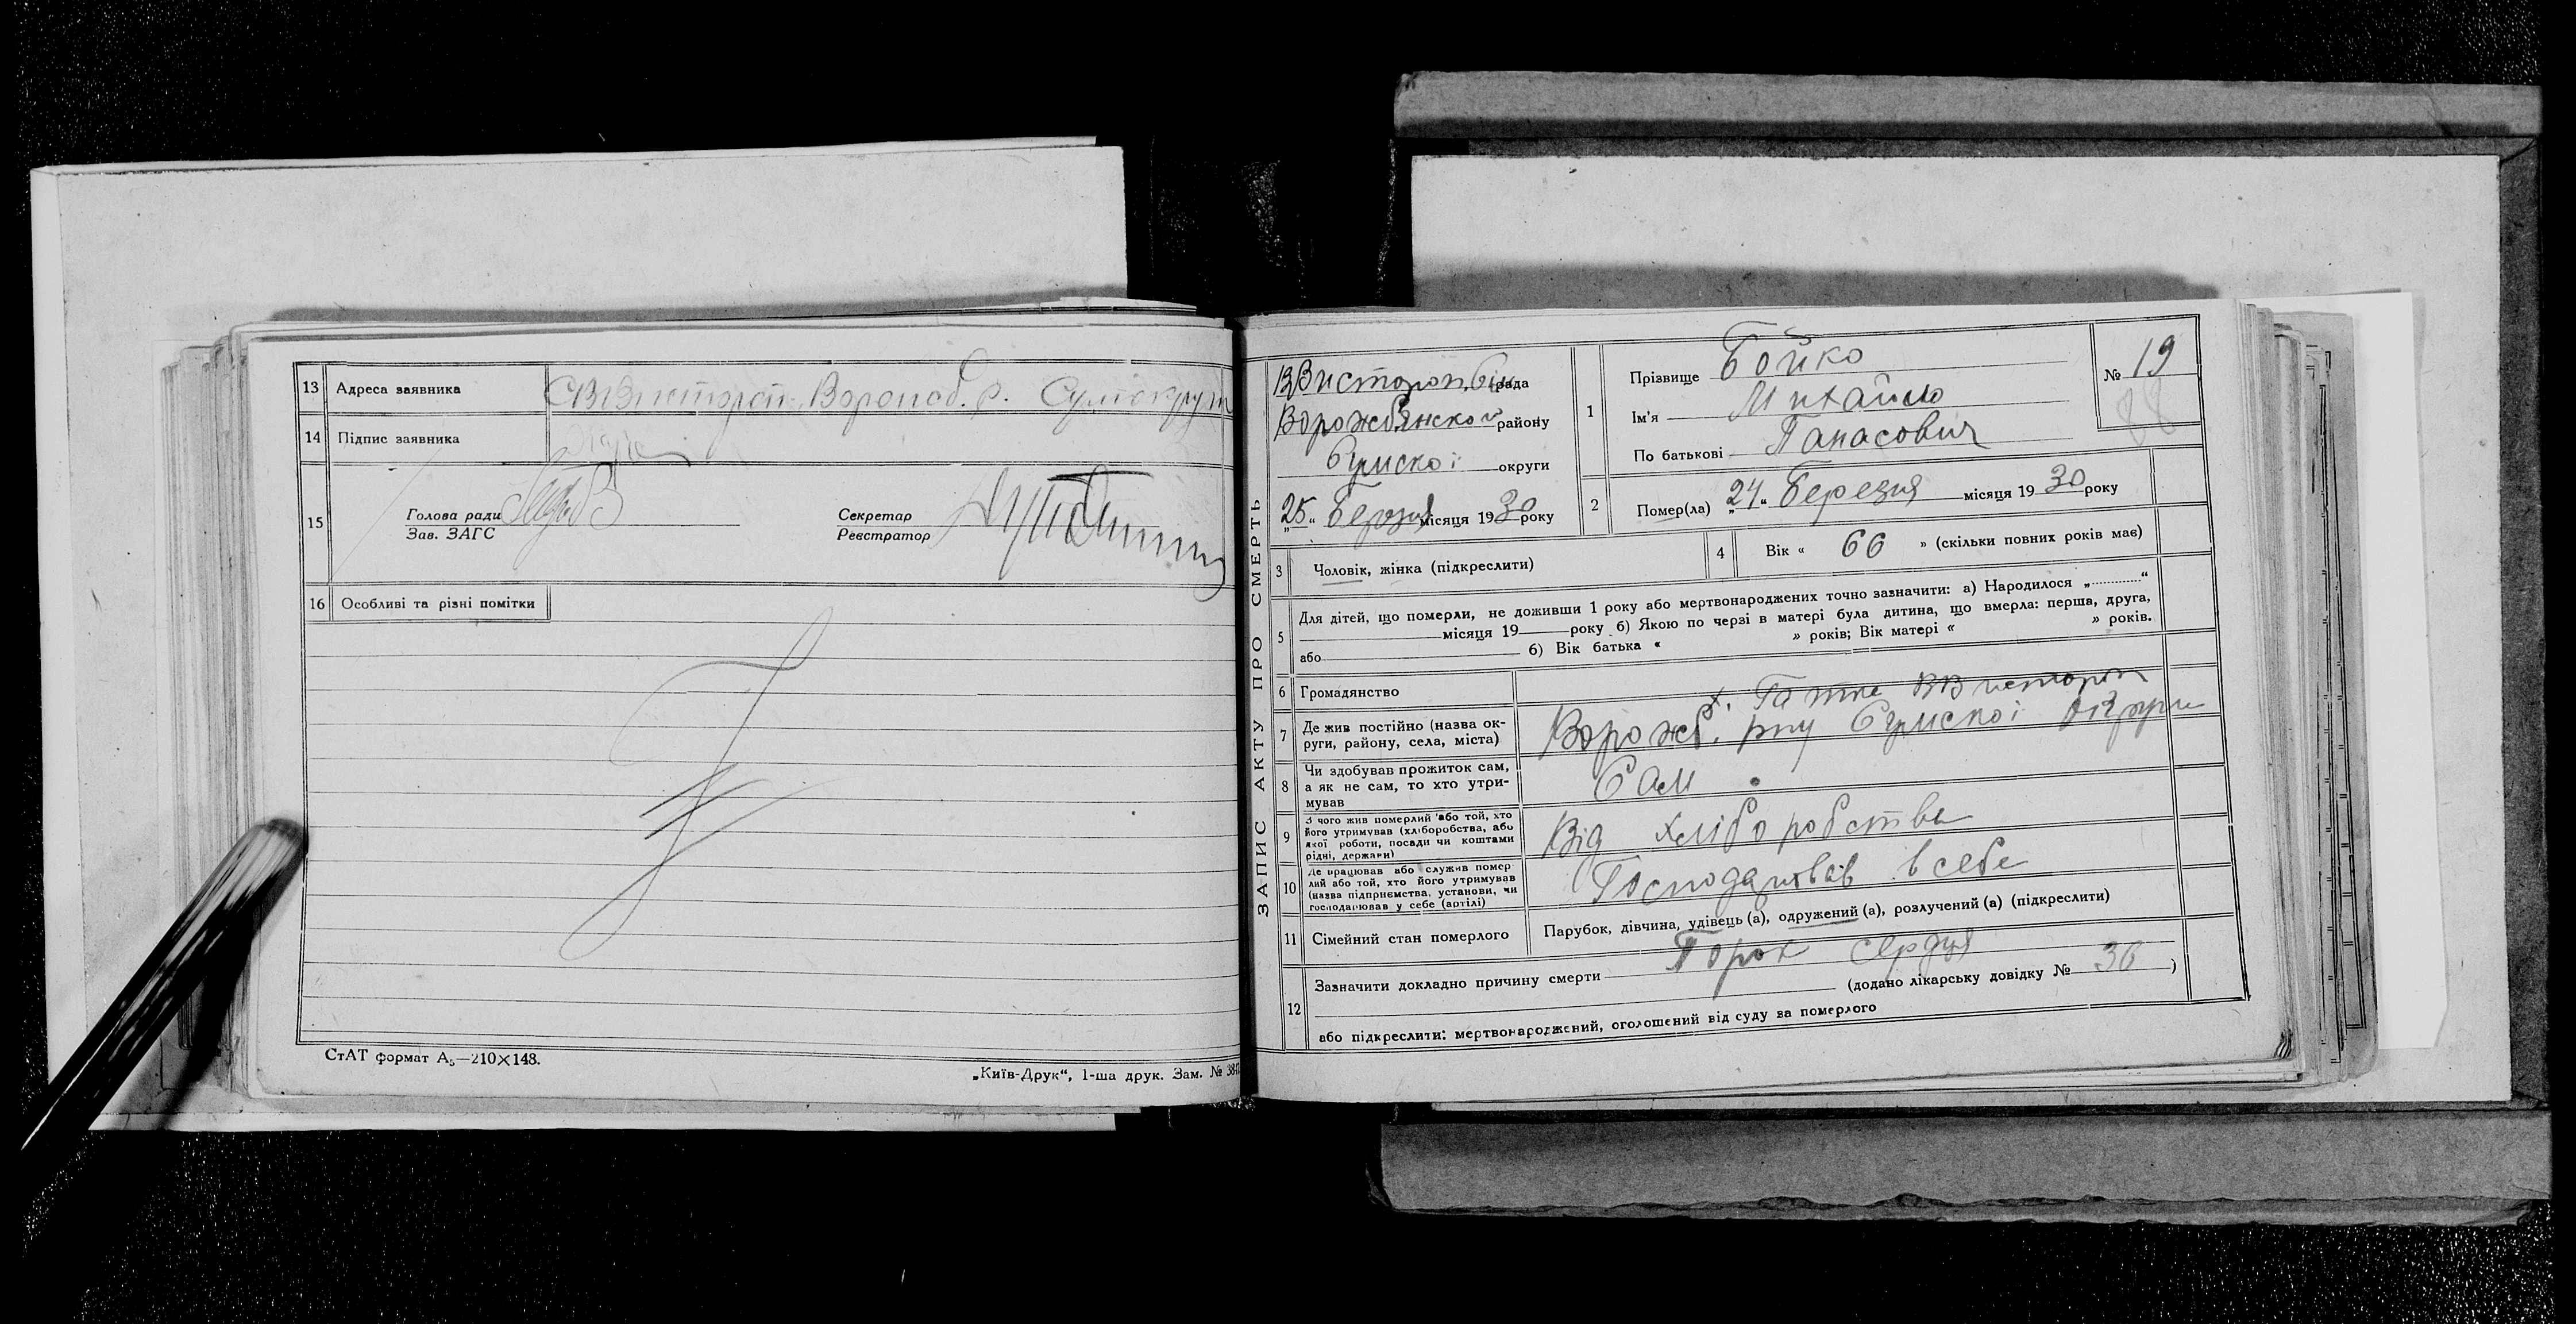 13 Адреса заявника
14 Підпис заявника
15 Голова ради Секретар
Зав. ЗАГС Реєстратор
16 Особливі та різні помітки
СтАТ формат А₅—210×148.
„Київ-Друк“, 1-ша друк. Зам. №
ЗАПИС АКТУ ПРО СМЕРТЬ
рада
Ворожбянской району
Сумскої округи
„25“ Березня місяця 1930 року
№ 19
1 Прізвище Бойко
Ім'я Михайло
По батькові Панасович
2 Помер(ла) „24“ Березня місяця 1930 року
3 Чоловік, жінка (підкреслити)
4 Вік « 66 » (скільки повних років має)
5 Для дітей, що померли, не доживши 1 року або мертвонароджених точно зазначити: а) Народилося „............“
місяця 19 року б) Якою по черзі в матері була дитина, що вмерла: перша, друга,
або б) Вік батька « » років; Вік матері « » років.
6 Громадянство
7 Де жив постійно (назва ок-
руги, району, села, міста)
Ворожб. рну Сумскої округи
8 Чи здобував прожиток сам,
а як не сам, то хто утри-
мував
Сам
9 З чого жив померлий або той, хто
його утримував (хліборобства, або
якої роботи, посади чи коштами
рідні, держави)
Від хліборобства
10 Де працював або служив помер
лий або той, хто його утримував
(назва підприємства, установи, чи
господарював у себе (артілі)
Господарював в себе
11 Сімейний стан померлого
Парубок, дівчина, удівець (а), одружений (а), розлучений (а) (підкреслити)
12 Зазначити докладно причину смерти Порок сердця
(додано лікарську довідку № 36 )
або підкреслити: мертвонароджений, оголошений від суду за померлого